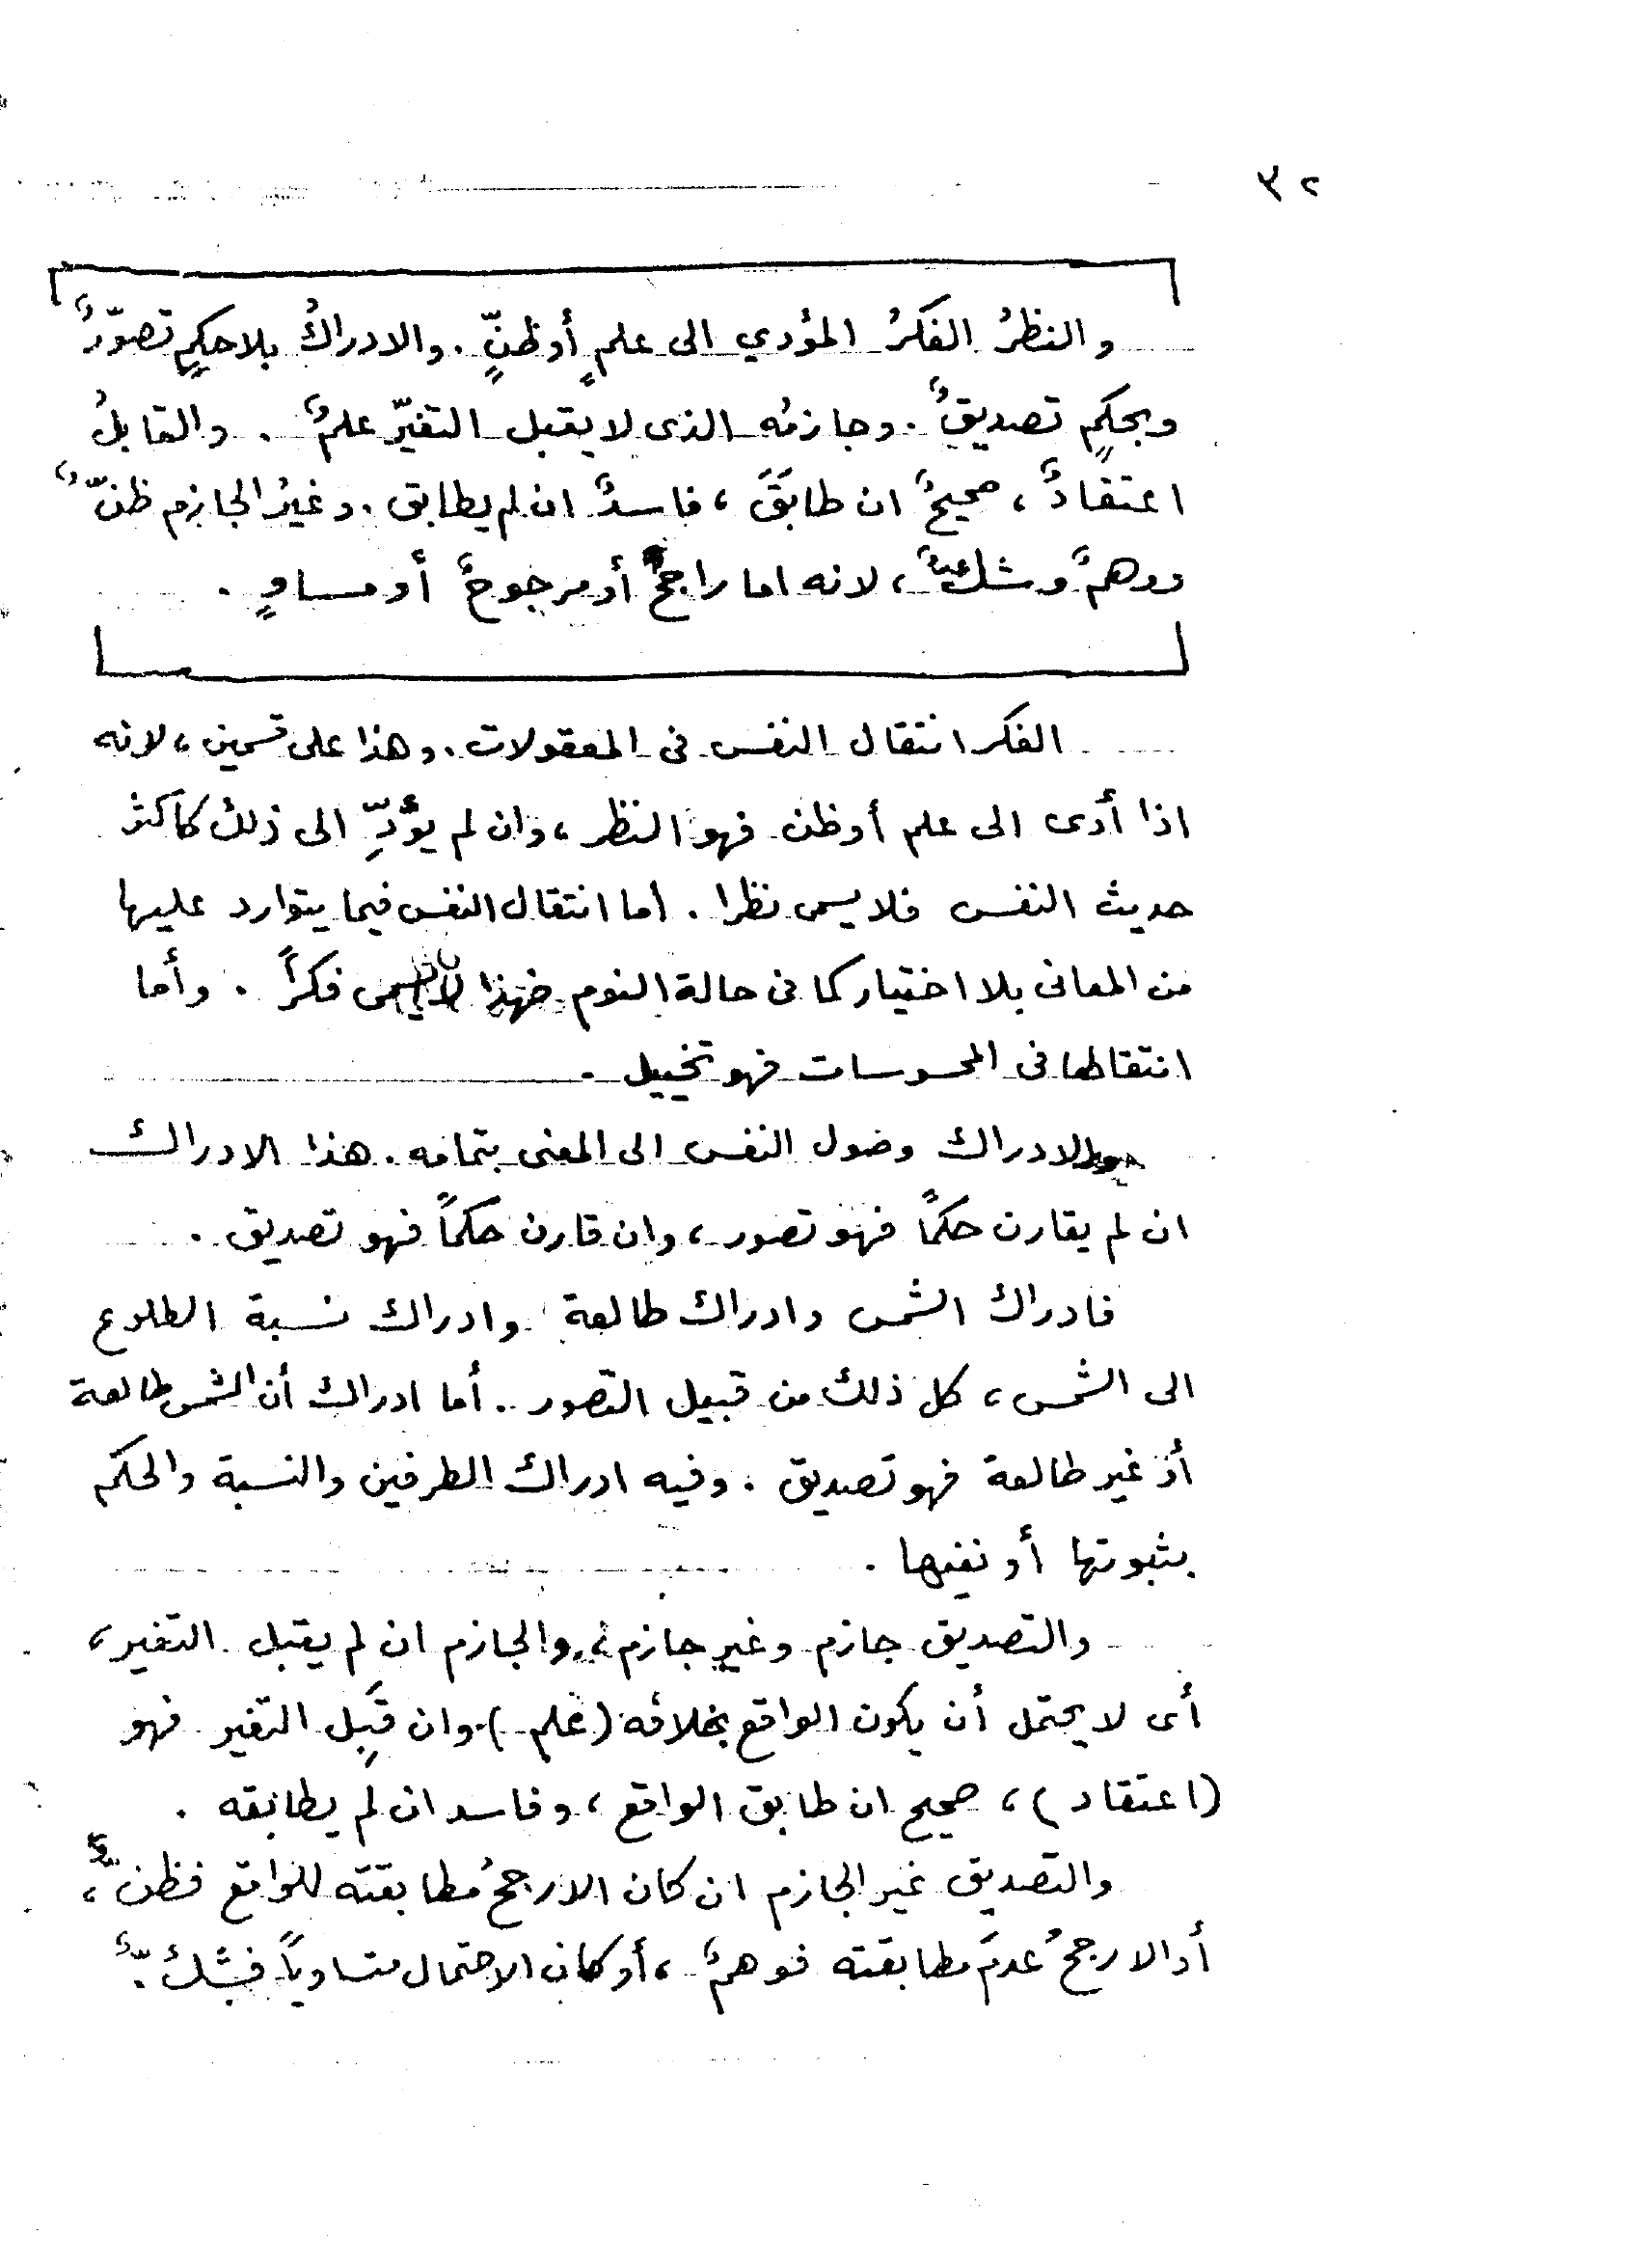 ٣٢
والنظرُ الفكرُ المؤدي الى علمٍ أو ظنٍّ . والادراكُ بلا حكمٍ تصوّرٌ
وبحكمٍ تصديقٌ . وجازمُه الذى لا يقبل التغيّر علمٌ . والقابلُ
اعتقادٌ ، صحيحٌ ان طابَقَ ، فاسدٌ ان لم يطابق . وغيرُ الجازم ظنٌّ
ووهمٌ وشكٌ ، لانه اما راجحٌ أو مرجوحٌ أو مساوٍ .
الفكر انتقال النفس فى المعقولات . وهذا على قسمين ، لانه
اذا أدى الى علم أو ظن فهو النظر ، وان لم يؤدِّ الى ذلك كأكثر
حديث النفس فلا يسمى نظرا . أما انتقال النفس فيما يتوارد عليها
من المعانى بلا اختيار كما فى حالة النوم فهذا لا يسمى فكراً . وأما
انتقالها فى المحسوسات فهو تخييل .
والادراك وصول النفس الى المعنى بتمامه . هذا الادراك
ان لم يقارن حكمًا فهو تصور ، وان قارن حكماً فهو تصديق .
فادراك الشمس وادراك طالعة وادراك نسبة الطلوع
الى الشمس ، كل ذلك من قبيل التصور . أما ادراك أن الشمس طالعة
أو غير طالعة فهو تصديق . وفيه ادراك الطرفين والنسبة والحكم
بثبوتها أو نفيها .
والتصديق جازم وغير جازم ، والجازم ان لم يقبل التغير ،
أى لا يحتمل أن يكون الواقع بخلافه (علم) وان قَبِل التغير فهو
(اعتقاد) ، صحيح ان طابق الواقع ، وفاسد ان لم يطابقه .
والتصديق غير الجازم ان كان الارجحُ مطابقته للواقع فظنٌّ ،
أو الارجحُ عدمَ مطابقته فوهمٌ ، أو كان الاحتمال متساوياً فشكٌّ .